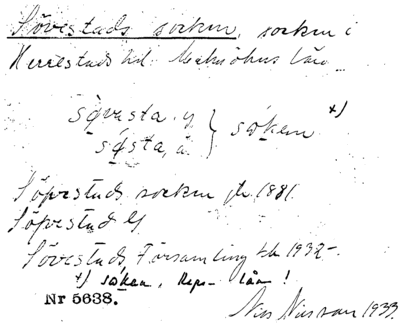 Sövestads socken, socken i
Herrestads hd. Malmöhus län
sǫ̀vesta. y } sǫ́ken +)
sǫ́sta, ä.
Söpestads socken jb 1881.
Söpestad Gs
Sövestads Församling tb 1932-.
+) sóken, Reps- län!
Nr 5638.
Nils Nilsson 1933.